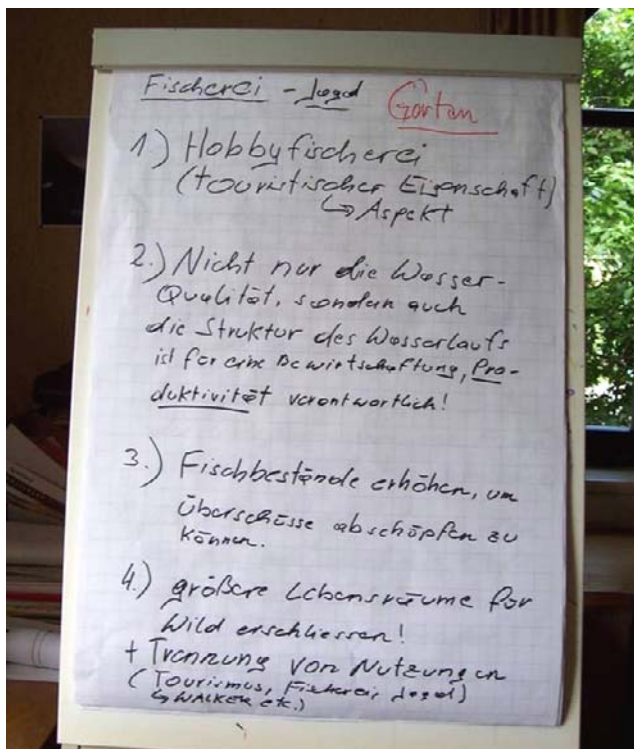 Fischerei - Jagd Görtan
1.) Hobbyfischerei
(touristischer Eigenschaft)
↳ Aspekt
2.) Nicht nur die Wasser-
Qualität, sondern auch
die Struktur des Wasserlaufs
ist für eine Bewirtschaftung, Pro-
duktivität verantwortlich!
3.) Fischbestände erhöhen, um
Überschüsse abschöpfen zu
können.
4.) größere Lebensräume für
Wild erschliessen!
+ Trennung von Nutzungen
(Tourismus, Fischerei, Jagd)
↳ WALKER etc.)